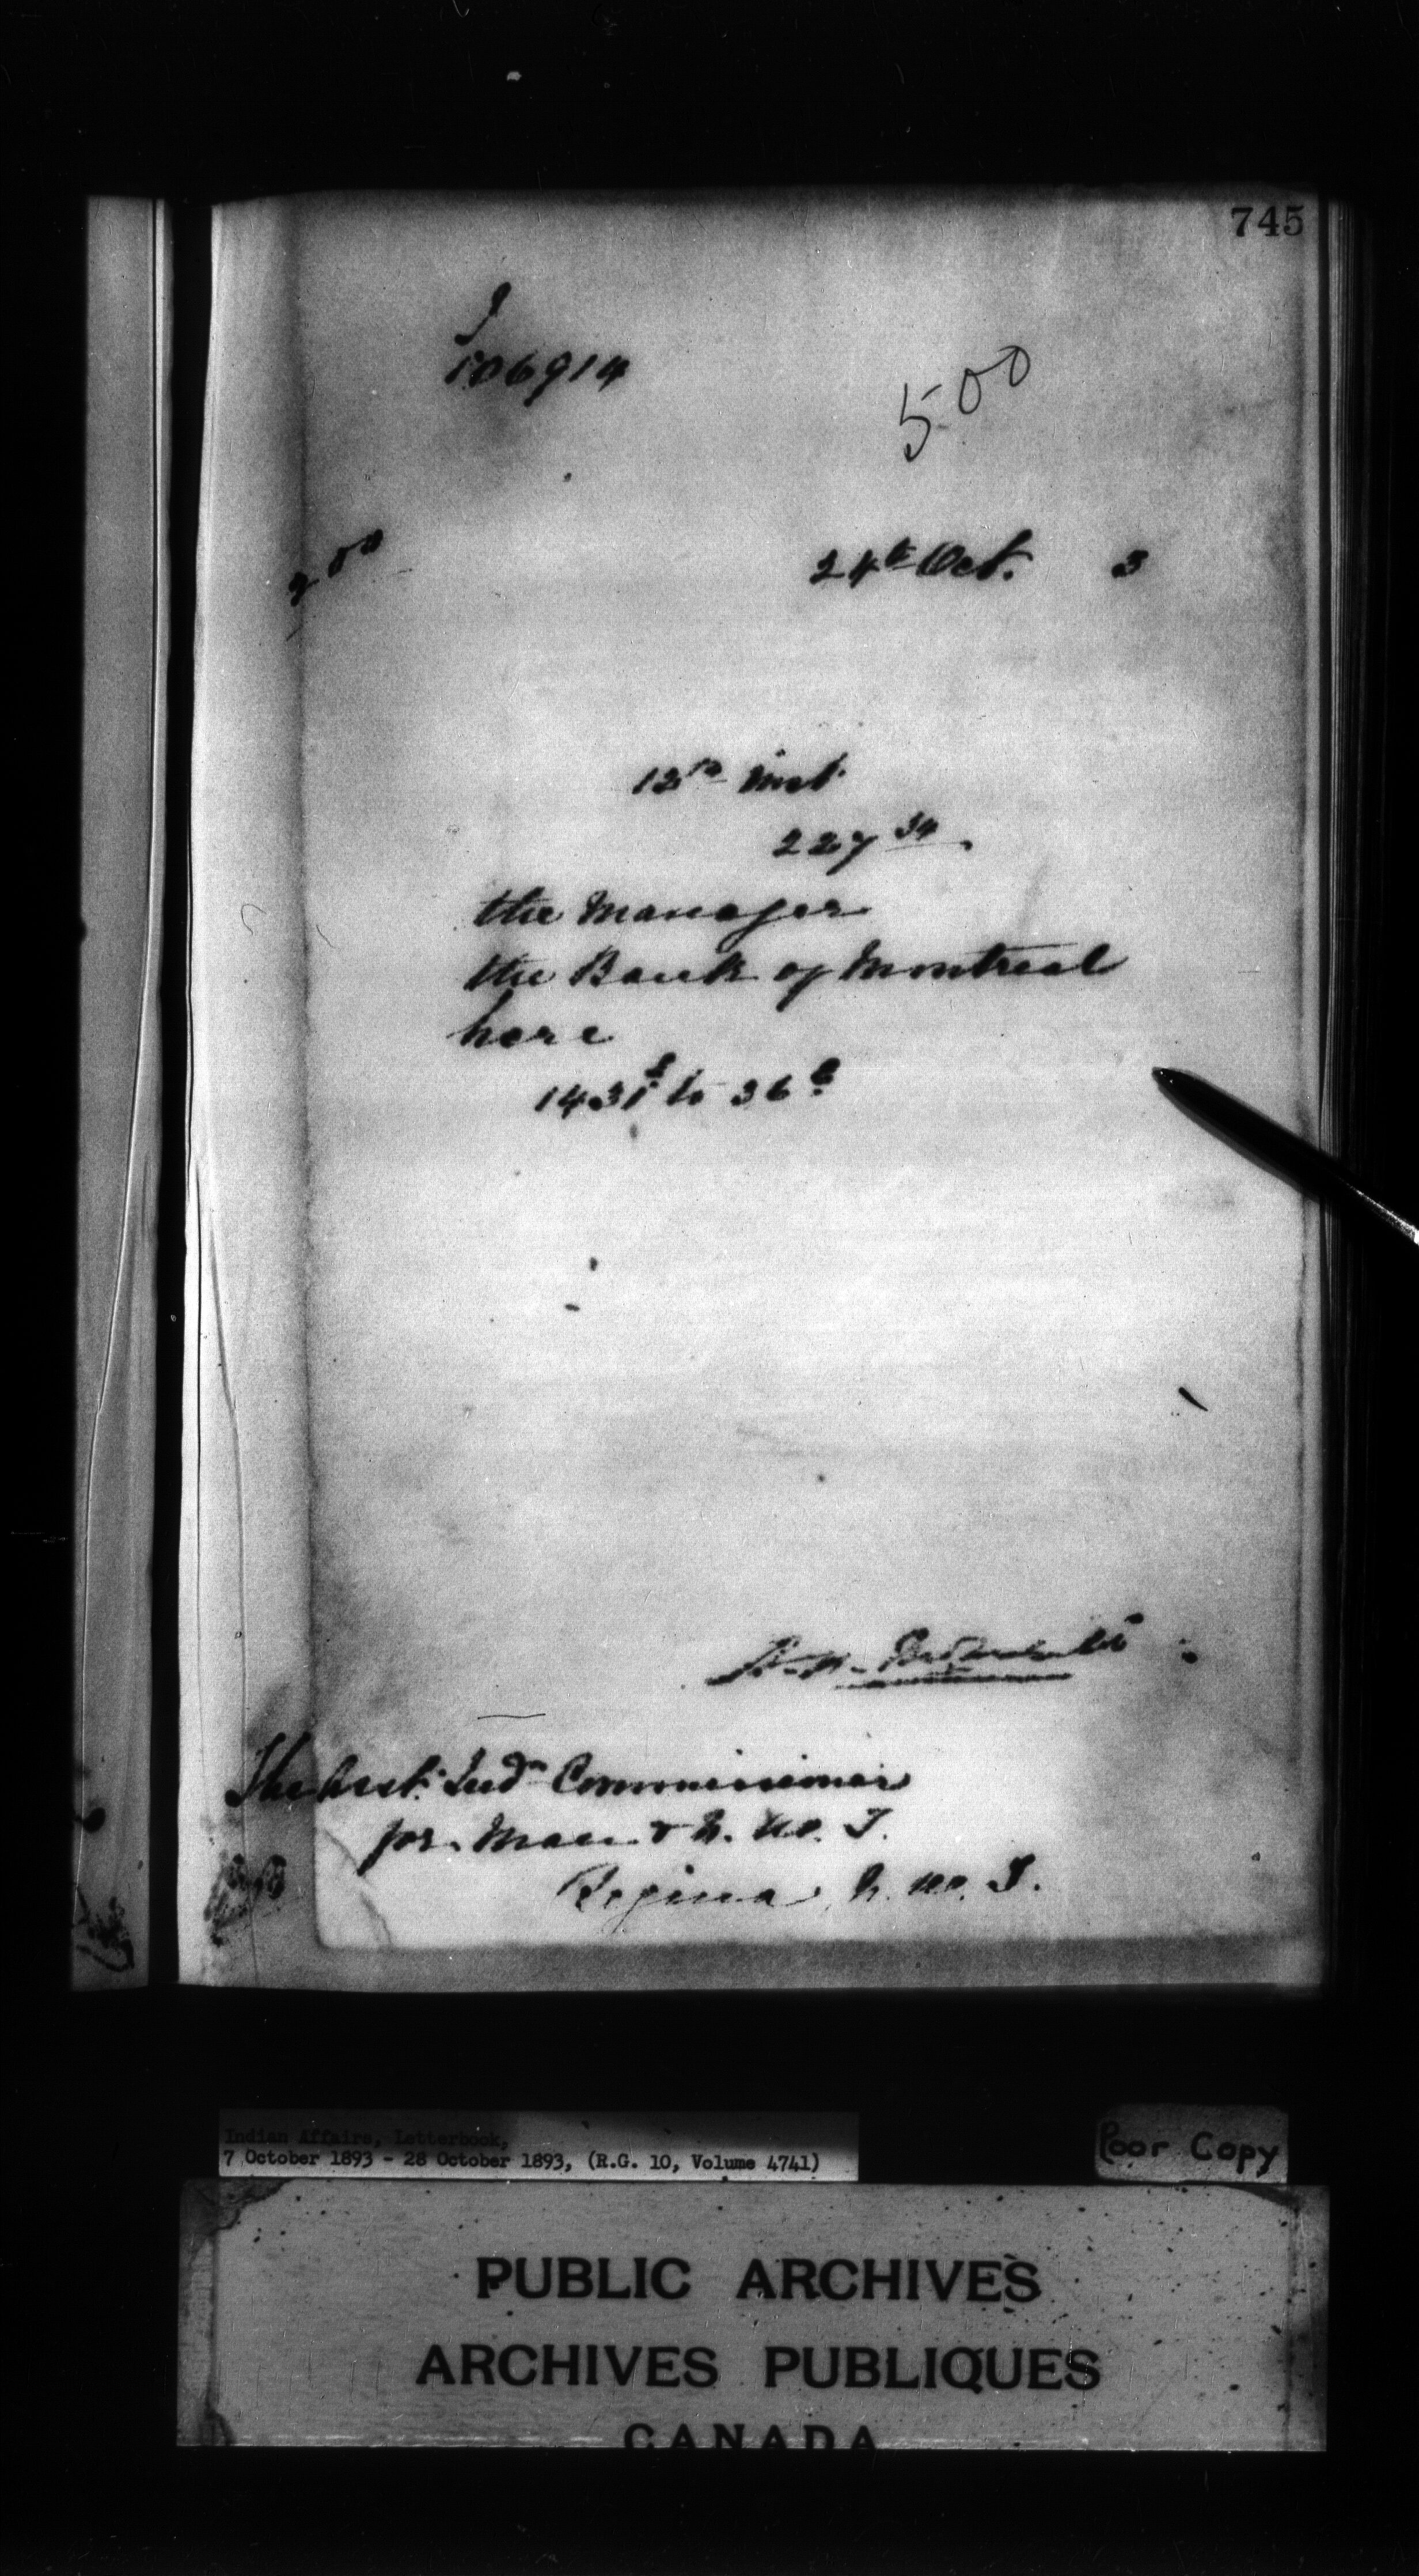 745
106914
500
200
24th Oct. 3
12th Inst.
227 34
the Manager
the Bank of Montreal
here
1431 to 36
The Asst. Indn Commissioner
for Man. & N. W. T.
Regina, N. W. T.
Indian Affairs, Letterbook,
7 October 1893 - 28 October 1893, (R.G. 10, Volume 4741)
Poor Copy
PUBLIC ARCHIVES
ARCHIVES PUBLIQUES
CANADA